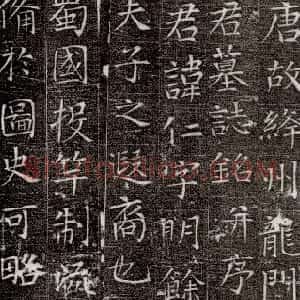 唐故絳州龍門
君墓誌銘并序
君諱仁字明餘
夫子之遐裔也
蜀國投竿制
備於圖史可略